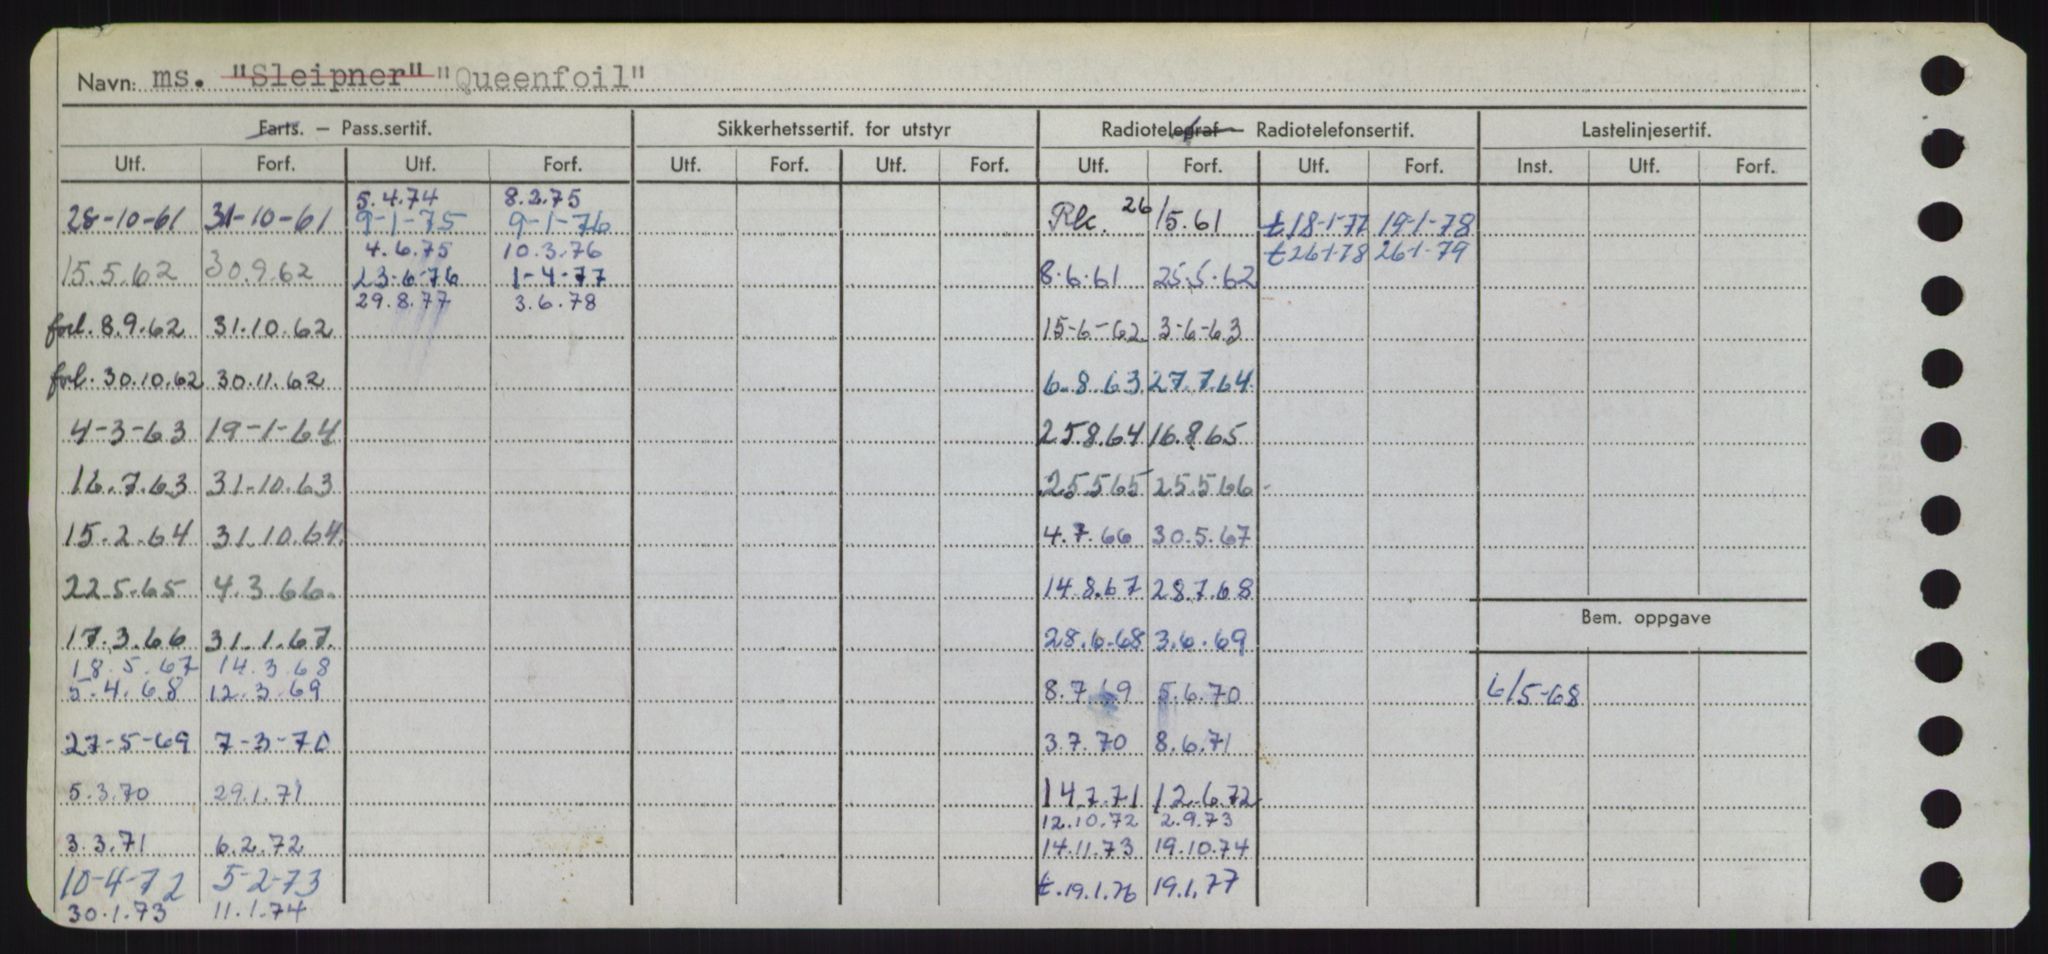 Navn: ms. "Sleipner" "Queenfoil"
Farts. – Pass.sertif. Sikkerhetssertif. for utstyr Radiotelegraf Radiotelefonsertif. Lastelinjesertif.
Utf. Forf. Utf. Forf. Utf. Forf. Utf. Forf. Utf. Forf. Utf. Forf. Inst. Utf. Forf.
5.4.74 8.2.75
28-10-61 31-10-61 9-1-75 9-1-76 Rk. 26/5.61 t 18-1-77 19-1-78
4.6.75 10.3.76 t 26-1-78 26-1-79
15.5.62 30.9.62 23-6-76 1-4-77 8.6.61 25.5.62
29.8.77 3.6.78
forl. 8.9.62 31.10.62 15-6-62 3-6-63
forl. 30.10.62 30.11.62 6.8.63 27.7.64
4-3-63 19-1-64 25.8.64 16.8.65
16.7.63 31-10.63 25.5.65 25.5.66
15.2.64 31.10.64 4.7.66 30.5.67
22.5.65 4.3.66 14.8.67 28.7.68
Bem. oppgave
17.3.66 31.1.67 28.6.68 3.6.69
18.5.67 14.3.68
5.4.68 12.3.69 8.7.69 5.6.70 6/5-68
27-5-69 7-3-70 3.7.70 8.6.71
5.3.70 29.1.71 14.7.71 12.6.72
12.10.72 2.9.73
3.3.71 6.2.72 14.11.73 19.10.74
10-4-72 5-2-73 t. 19.1.76 19.1.77
30.1.73 11.1.74